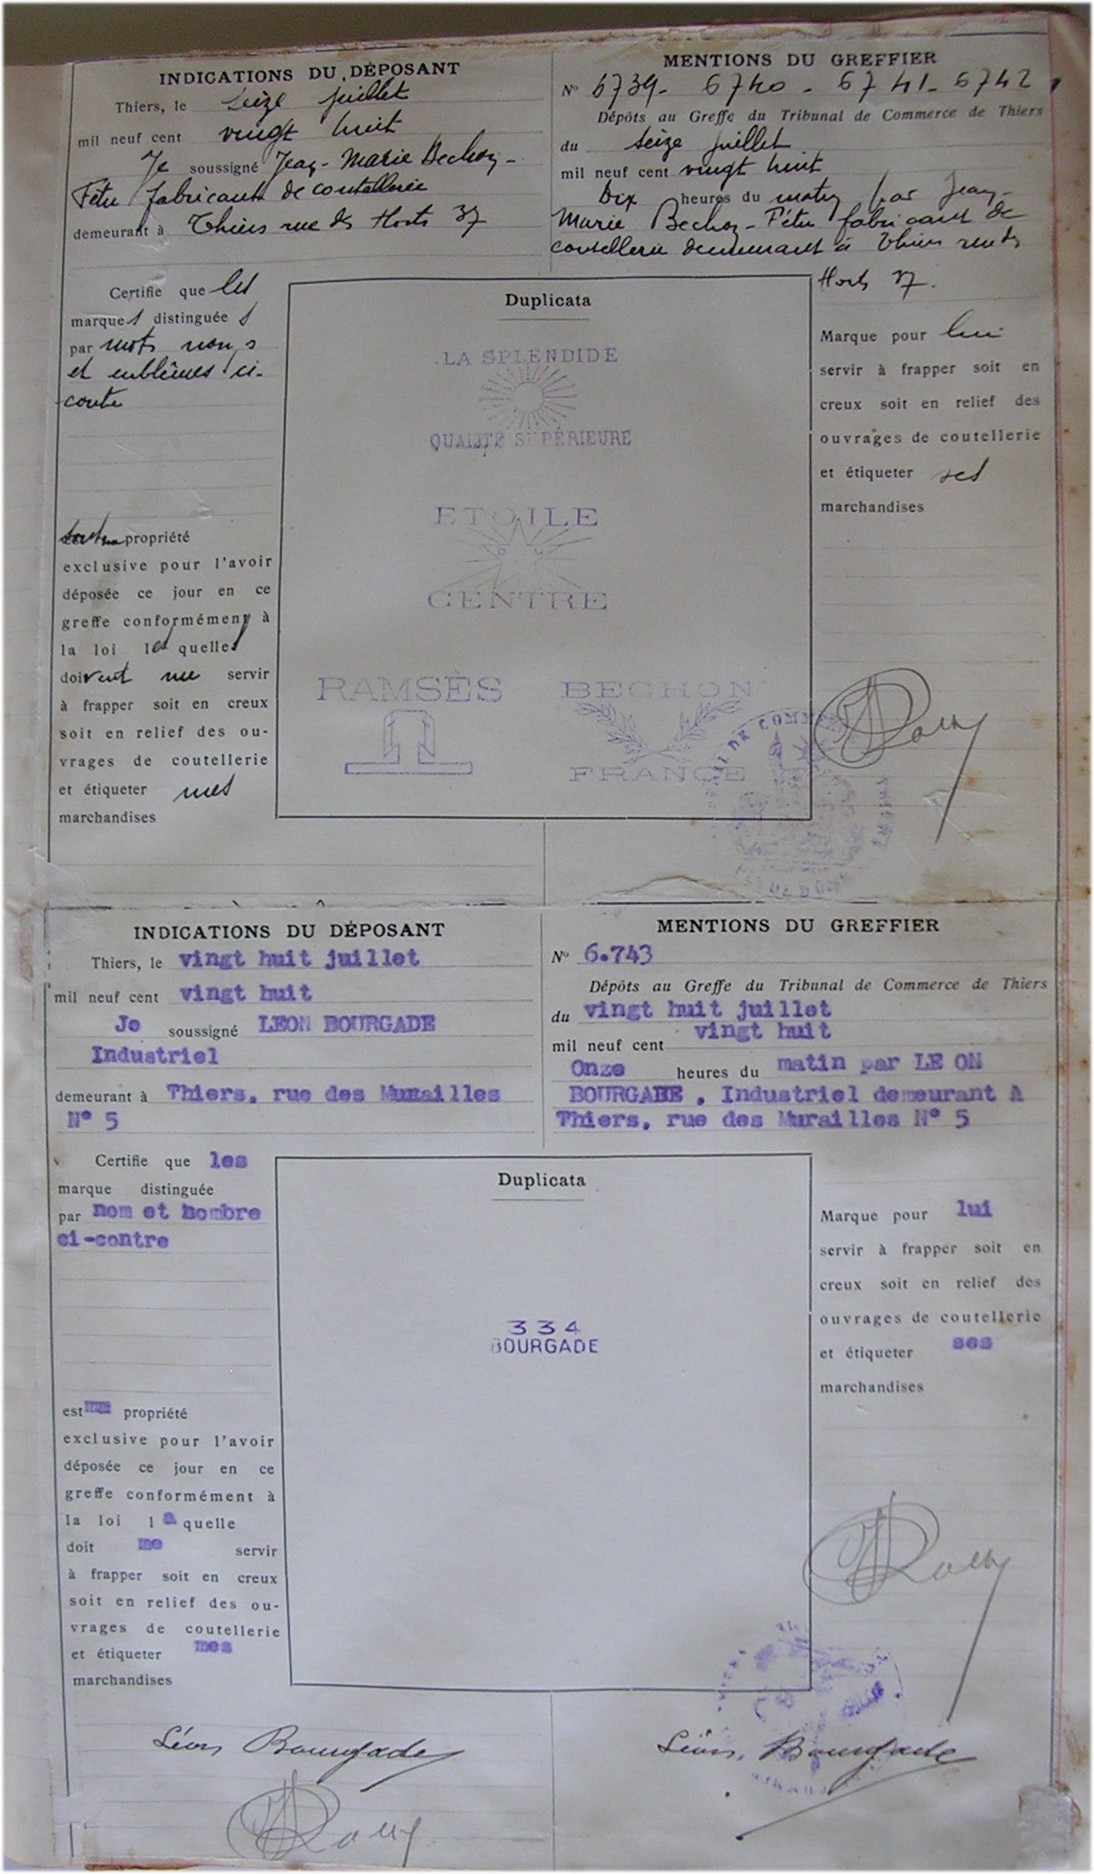 INDICATIONS DU DÉPOSANT
Thiers, le seize juillet
mil neuf cent vingt huit
Je soussigné Jean-Marie Bechon-
Fétu fabricant de coutellerie
demeurant à Thiers rue des Horts 37
MENTIONS DU GREFFIER
N° 6739- 6740 - 6741- 6742
Dépôts au Greffe du Tribunal de Commerce de Thiers
du seize juillet
mil neuf cent vingt huit
Dix heures du matin par Jean-
Marie Bechon-Fétu fabricant de
coutellerie demeurant à Thiers rue des
Horts 37.
Certifie que les
marques distinguées
par mots noms
et emblèmes ci-
contre
propriété
exclusive pour l'avoir
déposée ce jour en ce
greffe conformément à
la loi lesquelles
doivent me servir
à frapper soit en creux
soit en relief des ou-
vrages de coutellerie
et étiqueter mes
marchandises
Duplicata
LA SPLENDIDE
QUALITÉ SUPÉRIEURE
ETOILE
CENTRE
RAMSÈS
BECHON
FRANCE
Marque pour lui
servir à frapper soit en
creux soit en relief des
ouvrages de coutellerie
et étiqueter ses
marchandises
INDICATIONS DU DÉPOSANT
Thiers, le vingt huit juillet
mil neuf cent vingt huit
Je soussigné LEON BOURGADE
Industriel
demeurant à Thiers, rue des Murailles
N° 5
MENTIONS DU GREFFIER
N° 6.743
Dépôts au Greffe du Tribunal de Commerce de Thiers
du vingt huit juillet
mil neuf cent vingt huit
Onze heures du matin par LE ON
BOURGADE , Industriel demeurant à
Thiers, rue des Murailles N° 5
Certifie que les
marque distinguée
par nom et nombre
ci-contre
est propriété
exclusive pour l'avoir
déposée ce jour en ce
greffe conformément à
la loi laquelle
doit me servir
à frapper soit en creux
soit en relief des ou-
vrages de coutellerie
et étiqueter mes
marchandises
Duplicata
334
BOURGADE
Marque pour lui
servir à frapper soit en
creux soit en relief des
ouvrages de coutellerie
et étiqueter ses
marchandises
Léon Bourgade
Léon Bourgade